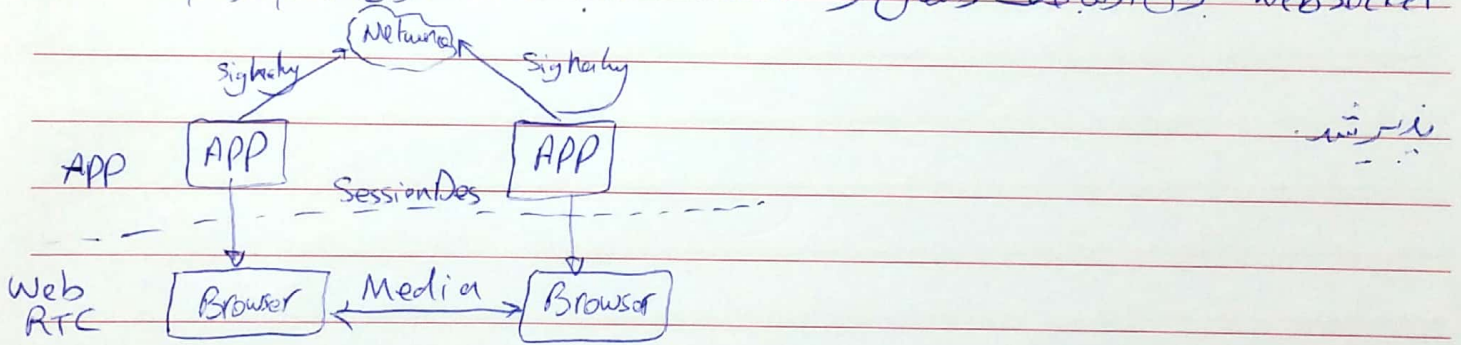 WebSocket
Network
Signaling Signaling
پذیر شد.
APP APP APP
SessionDes
Web RTC
Browser Media Browser